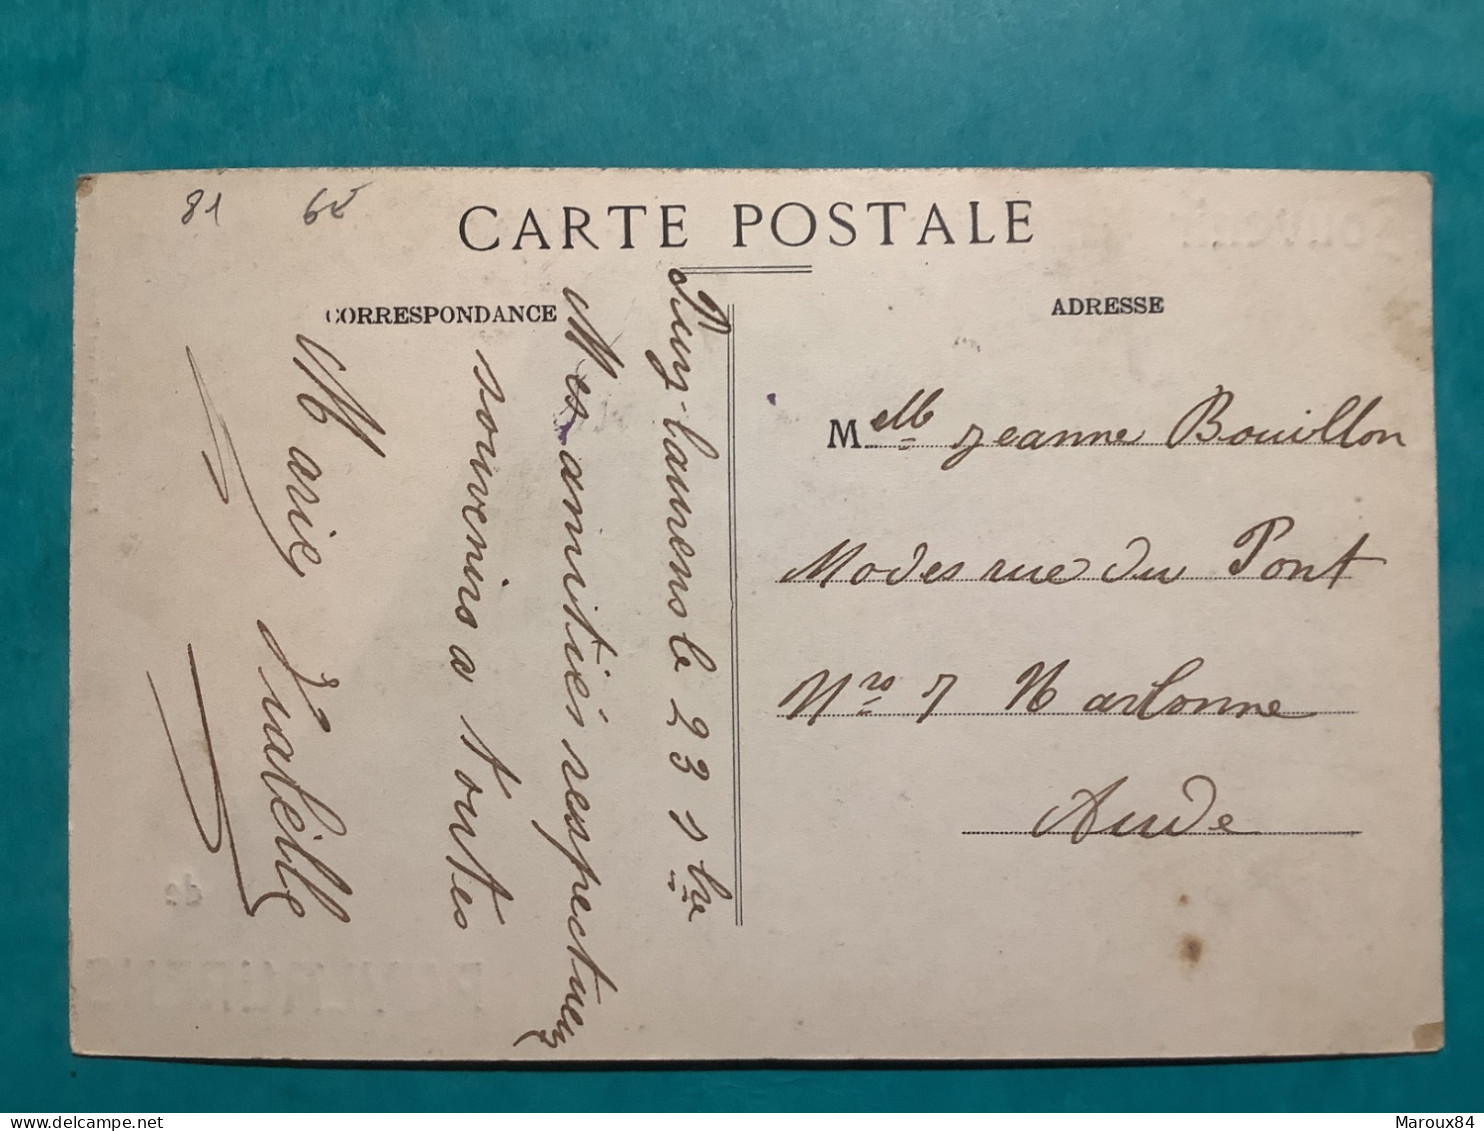 81 65
CARTE POSTALE
CORRESPONDANCE
ADRESSE
Puylaurens le 23 sbre
Mes amitiés respectueux
souvenirs a toutes
Marie
Melle jeanne Bouillon
Modes rue du Pont
Nro 7 Narbonne
Aude
Souvenir
de
PUYLAURENS
Maroux84